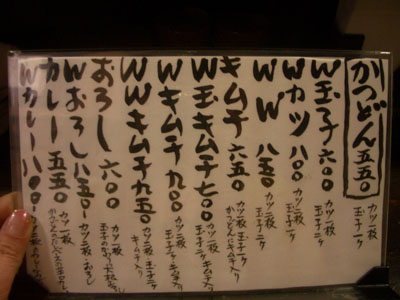 かつどん 五五〇 カツ一枚 玉子二ケ
W玉子 六〇〇 カツ一枚
Wカツ 八〇〇 カツ二枚 玉子二ケ
WW 八五〇 カツ二枚
キムチ 六五〇 カツ一枚 玉子二ケ かつどんにキムチ入り
W玉キムチ 七〇〇 カツ一枚 キムチ入り
Wキムチ 九〇〇 カツ二枚 玉子二ケ キムチ入り
WWキムチ 九五〇 カツ二枚 キムチ入り
おろし 六〇〇 カツ一枚
Wおろし 八五〇 カツ二枚 おろし
カレー 五五〇 カツ一枚
Wカレー 八〇〇 カツ二枚